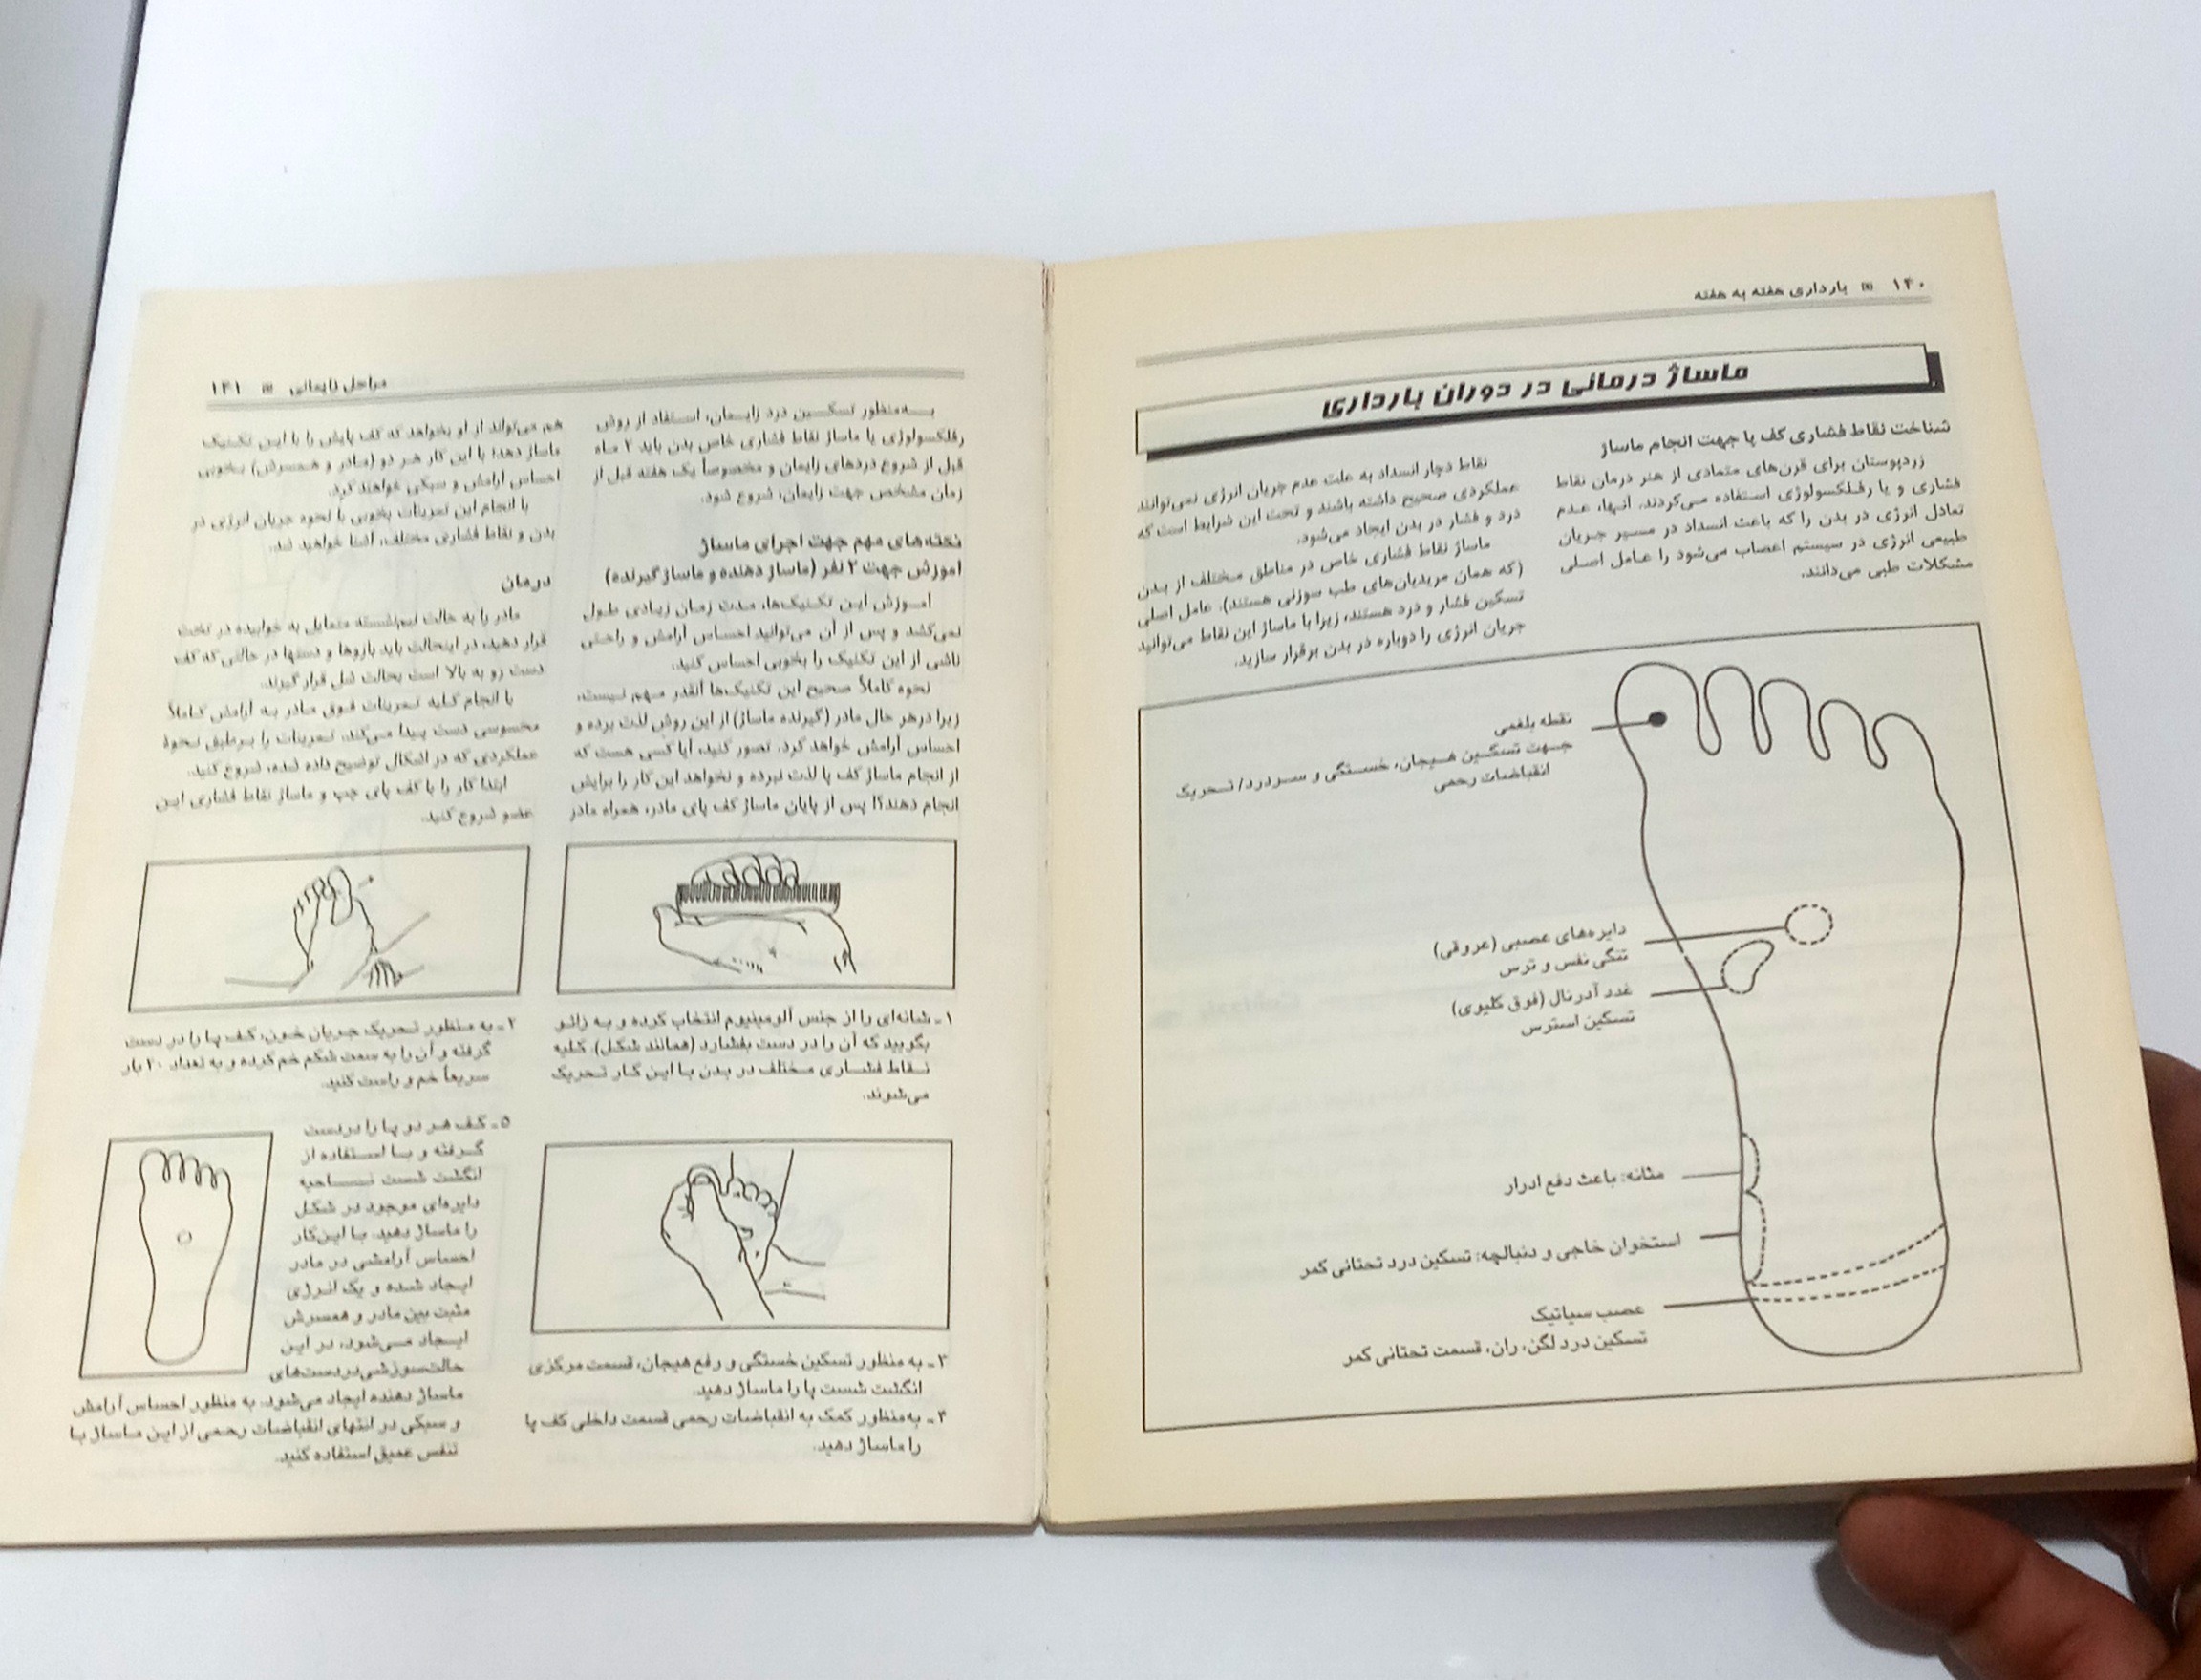 ۱۴۰ بارداری هفته به هفته
ماساژ درمانی در دوران بارداری
شناخت نقاط فشاری کف پا جهت انجام ماساژ
زردپوستان برای قرن‌های متمادی از هنر درمان نقاط
فشاری و یا رفلکسولوژی استفاده می‌کردند. آنها، عدم
تعادل انرژی در بدن را که باعث انسداد در مسیر جریان
طبیعی انرژی در سیستم اعصاب می‌شود را عامل اصلی
مشکلات طبی می‌دانند.
نقاط دچار انسداد به علت عدم جریان انرژی نمی‌توانند
عملکردی صحیح داشته باشند و تحت این شرایط است که
درد و فشار در بدن ایجاد می‌شود.
ماساژ نقاط فشاری خاص در مناطق مختلف از بدن
(که همان مریدیان‌های طب سوزنی هستند)، عامل اصلی
تسکین فشار و درد هستند، زیرا با ماساژ این نقاط می‌توانید
جریان انرژی را دوباره در بدن برقرار سازید.
نقطه بلغمی
جهت تسکین هیجان، خستگی و سردرد/ تحریک
انقباضات رحمی
دایره‌های عصبی (عروقی)
تنگی نفس و ترس
غدد آدرنال (فوق کلیوی)
تسکین استرس
مثانه: باعث دفع ادرار
استخوان خاجی و دنبالچه: تسکین درد تحتانی کمر
عصب سیاتیک
تسکین درد لگن، ران، قسمت تحتانی کمر
مراحل زایمانی ۱۴۱
به‌منظور تسکین درد زایمان، استفاد از روش
رفلکسولوژی یا ماساژ نقاط فشاری خاص بدن باید ۲ ماه
قبل از شروع دردهای زایمان و مخصوصاً یک هفته قبل از
زمان مشخص جهت زایمان، شروع شود.
نکته‌های مهم جهت اجرای ماساژ
آموزش جهت ۲ نفر (ماساژ دهنده و ماساژ گیرنده)
آموزش این تکنیک‌ها، مدت زمان زیادی طول
نمی‌کشد و پس از آن می‌توانید احساس آرامش و راحتی
ناشی از این تکنیک را بخوبی احساس کنید.
نحوه کاملاً صحیح این تکنیک‌ها آنقدر مهم نیست،
زیرا درهر حال مادر (گیرنده ماساژ) از این روش لذت برده و
احساس آرامش خواهد کرد. تصور کنید، آیا کسی هست که
از انجام ماساژ کف پا لذت نبرده و نخواهد این کار را برایش
انجام دهند؟! پس از پایان ماساژ کف پای مادر، همراه مادر
هم می‌تواند از او بخواهد که کف پایش را با این تکنیک
ماساژ دهد؛ با این کار هر دو (مادر و همسرش) بخوبی
احساس آرامش و سبکی خواهند کرد.
با انجام این تمرینات بخوبی با نحوه جریان انرژی در
بدن و نقاط فشاری مختلف، آشنا خواهید شد.
درمان
مادر را به حالت نیم‌نشسته متمایل به خوابیده در تخت
قرار دهید، در اینحالت باید بازوها و دستها در حالتی که کف
دست رو به بالا است بحالت شل قرار گیرند.
با انجام کلیه تمرینات فوق مادر به آرامش کاملاً
محسوسی دست پیدا می‌کند. تمرینات را برطبق نحوهٔ
عملکردی که در اشکال توضیح داده شده، شروع کنید.
ابتدا کار را با کف پای چپ و ماساژ نقاط فشاری این
عضو شروع کنید.
۱ـ شانه‌ای را از جنس آلومینیوم انتخاب کرده و به زائو
بگویید که آن را در دست بفشارد (همانند شکل). کلیه
نقاط فشاری مختلف در بدن با این کار تحریک
می‌شوند.
۲ـ به منظور تحریک جریان خون، کف پا را در دست
گرفته و آن را به سمت شکم خم کرده و به تعداد ۲۰ بار
سریعاً خم و راست کنید.
۳ـ به منظور تسکین خستگی و رفع هیجان، قسمت مرکزی
انگشت شست پا را ماساژ دهید.
۴ـ به‌منظور کمک به انقباضات رحمی قسمت داخلی کف پا
را ماساژ دهید.
۵ـ کف هر دو پا را دردست
گرفته و با استفاده از
انگشت شست ناحیه
دایره‌ای موجود در شکل
را ماساژ دهید. با این‌کار
احساس آرامشی در مادر
ایجاد شده و یک انرژی
مثبت بین مادر و همسرش
ایجاد می‌شود، در این
حالت‌سوزشی‌دردست‌های
ماساژ دهنده ایجاد می‌شود. به منظور احساس آرامش
و سبکی در انتهای انقباضات رحمی از این ماساژ با
تنفس عمیق استفاده کنید.